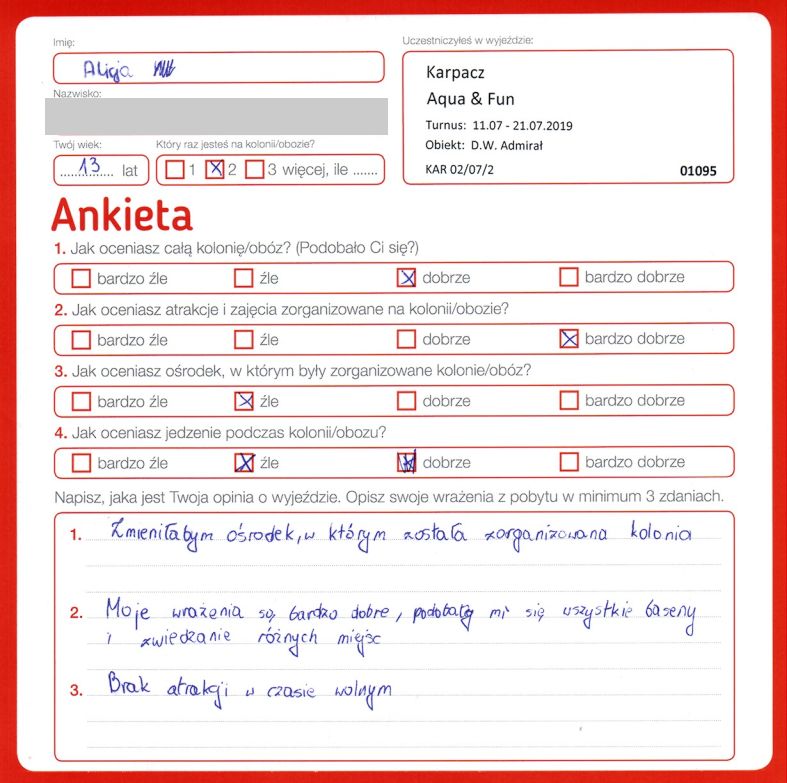 Imię:
Alicja
Nazwisko:
Twój wiek:
13 lat
Który raz jesteś na kolonii/obozie?
1 2 3 więcej, ile .......
Uczestniczyłeś w wyjeździe:
Karpacz
Aqua & Fun
Turnus: 11.07 - 21.07.2019
Obiekt: D.W. Admirał
KAR 02/07/2 01095
Ankieta
1. Jak oceniasz całą kolonię/obóz? (Podobało Ci się?)
bardzo źle źle dobrze bardzo dobrze
2. Jak oceniasz atrakcje i zajęcia zorganizowane na kolonii/obozie?
bardzo źle źle dobrze bardzo dobrze
3. Jak oceniasz ośrodek, w którym były zorganizowane kolonie/obóz?
bardzo źle źle dobrze bardzo dobrze
4. Jak oceniasz jedzenie podczas kolonii/obozu?
bardzo źle źle dobrze bardzo dobrze
Napisz, jaka jest Twoja opinia o wyjeździe. Opisz swoje wrażenia z pobytu w minimum 3 zdaniach.
1. Zmieniłabym ośrodek, w którym została zorganizowana kolonia
2. Moje wrażenia są bardzo dobre, podobały mi się wszystkie baseny
i zwiedzanie różnych miejsc
3. Brak atrakcji w czasie wolnym